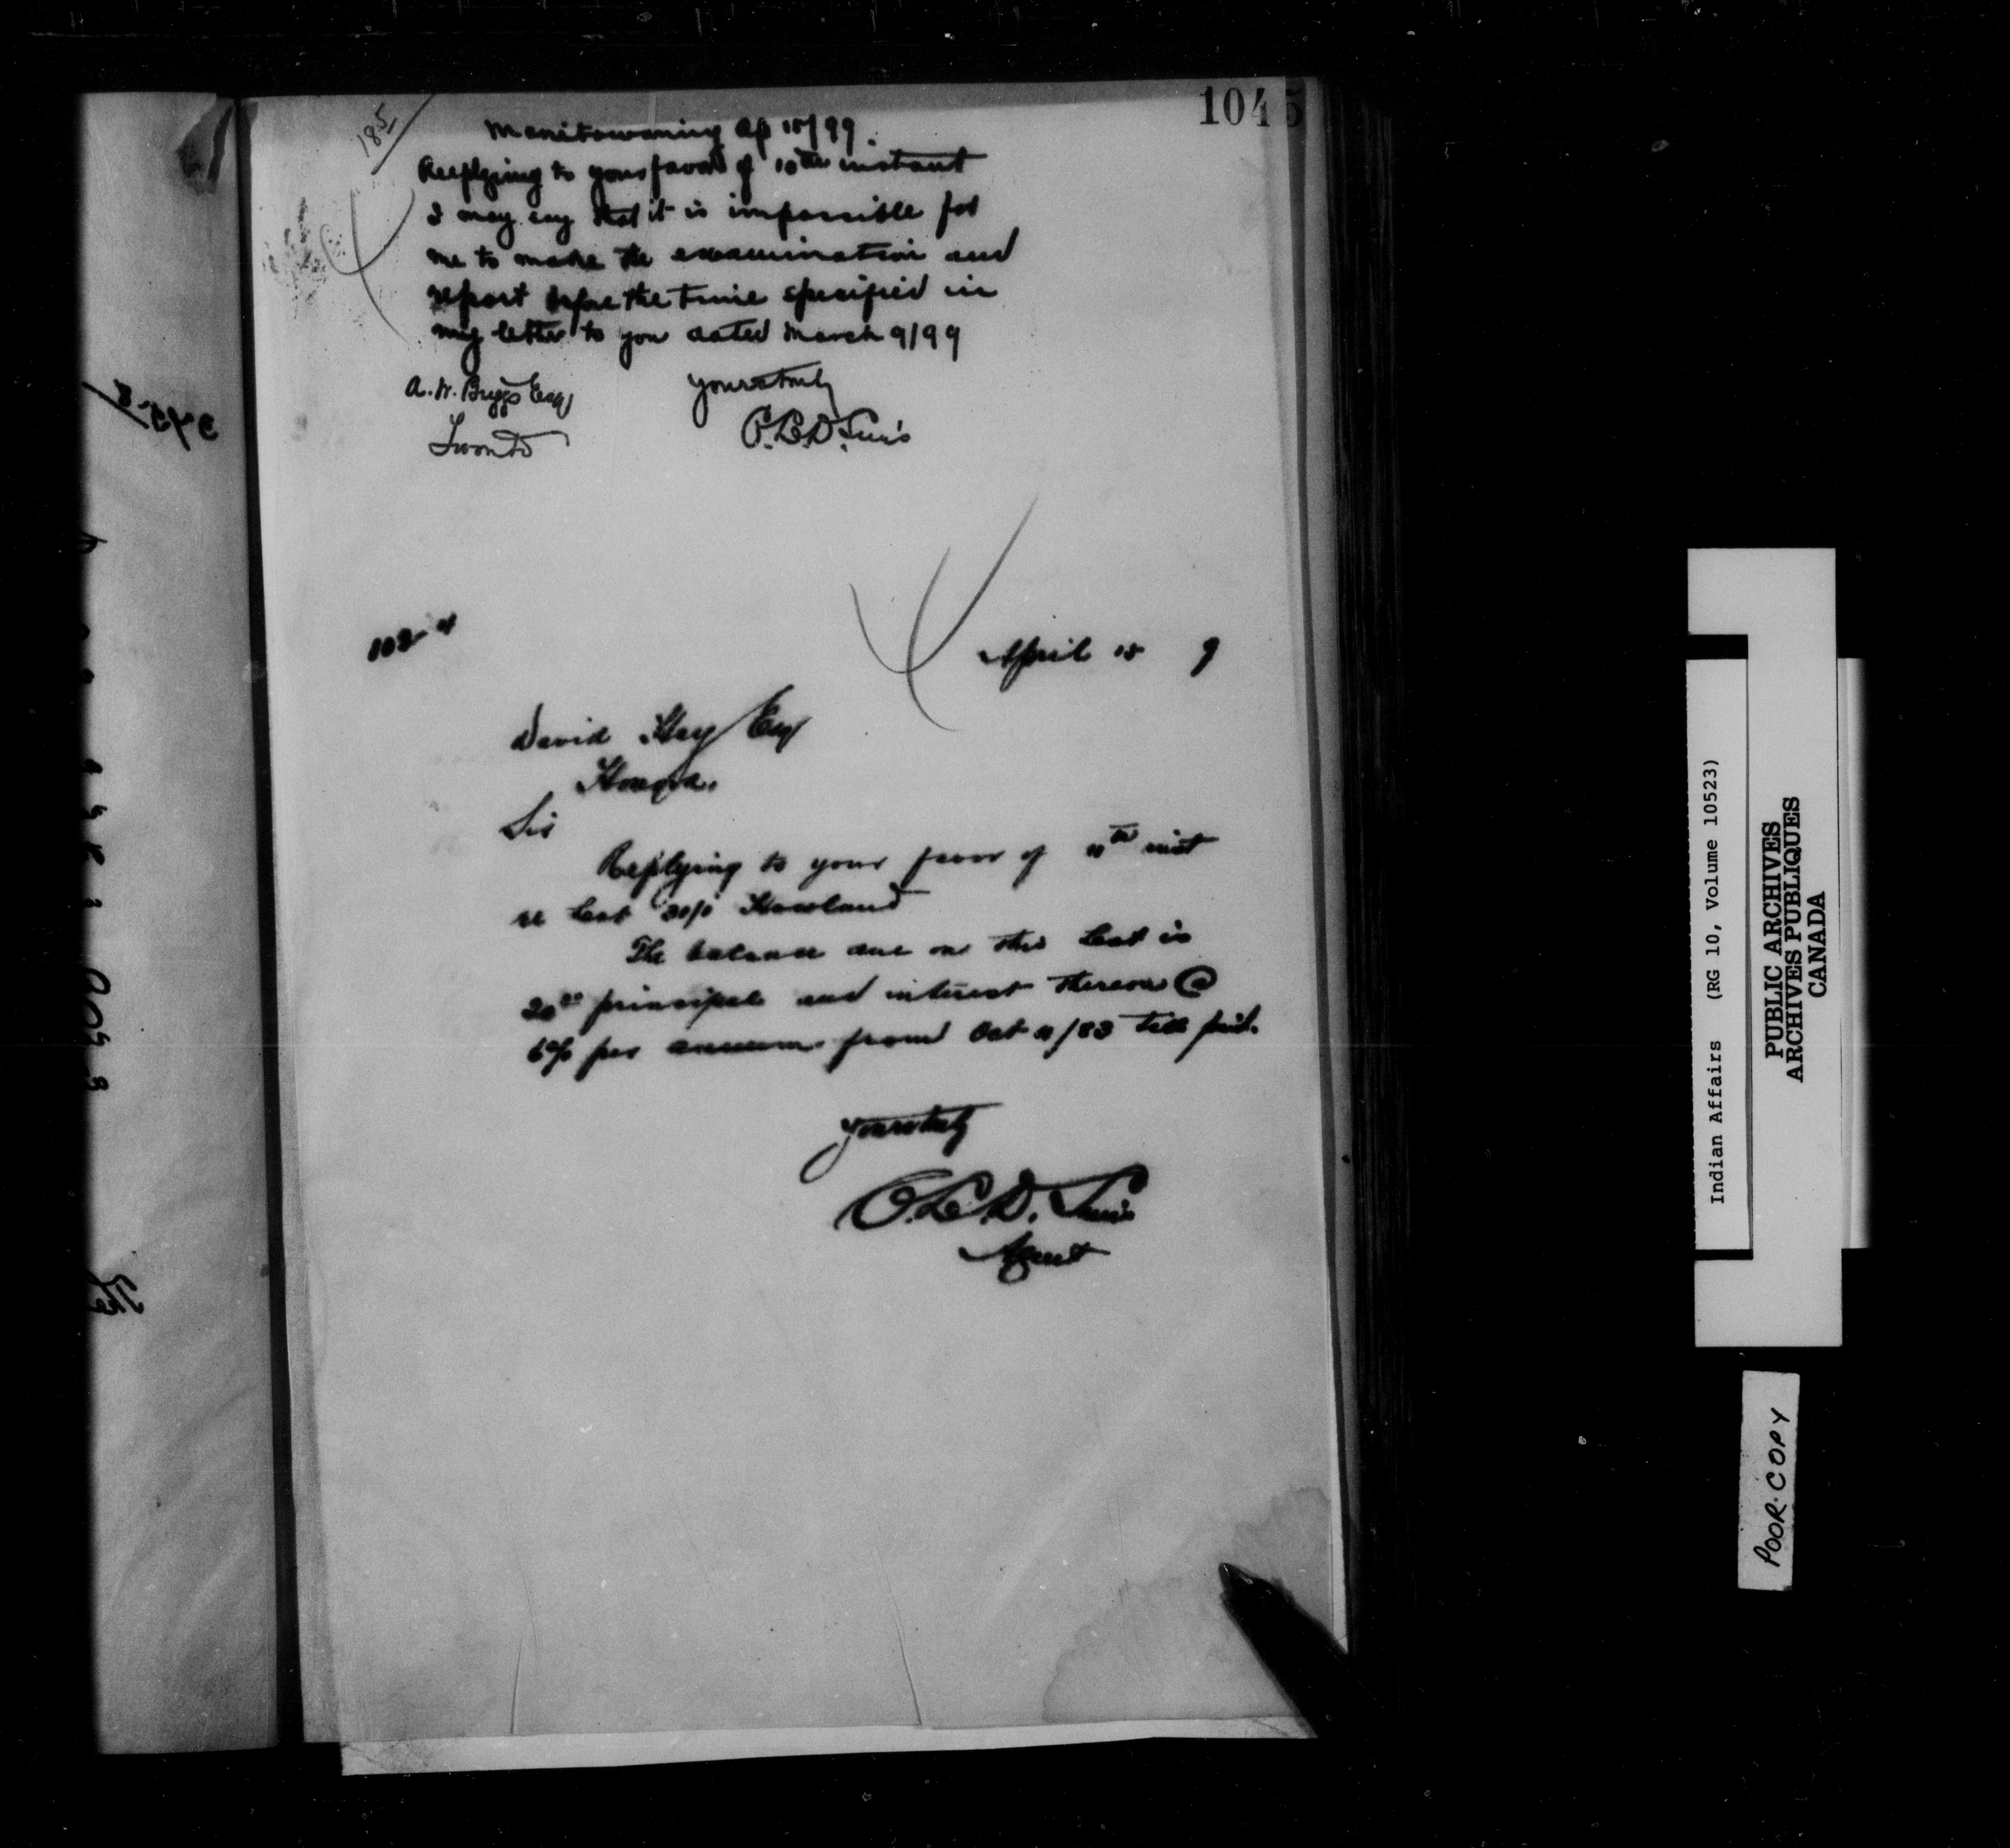 1045
185
Manitowaning Ap 15/99.
Replying to your favor of 10th instant
I may say that it is impossible for
me to make the examination and
report before the time specified in
my letter to you dated March 9/99
A. W. Briggs Esq
Toronto
Yours truly
April 15 9
David Hay Esq
Sir
Replying to your favor of 11th inst
re Lot Howland
The balance due on this Lot is
20 00 principal and interest thereon @
6% per annum from Oct 11/83 till paid.
Yours truly
Agent
Indian Affairs (RG 10, Volume 10523)
PUBLIC ARCHIVES
ARCHIVES PUBLIQUES
CANADA
POOR COPY